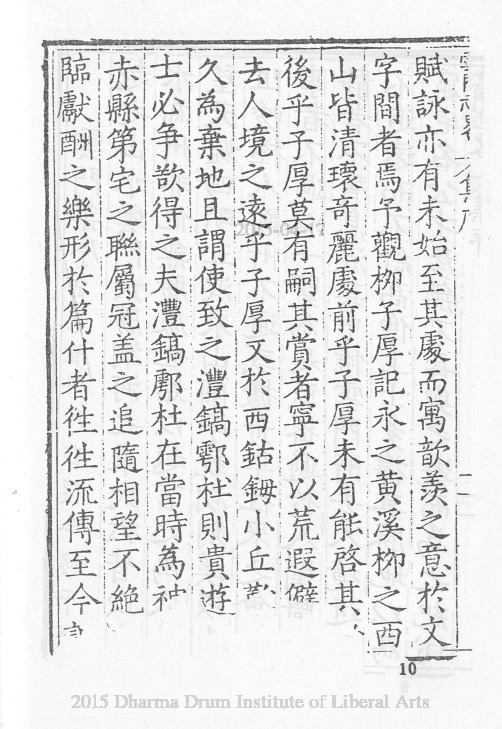 賦詠亦有未始至其處而寓歆羨之意於文
字間者焉予觀栁子厚記永之黄溪栁之西
山皆清瓌竒麗處前乎子厚未有能啓其
後乎子厚莫有嗣其賞者寧不以荒遐僻
去人境之遠乎子厚又於西鈷鉧小丘
久為棄地且謂使致之灃鎬鄠杜則貴遊
士必争欲得之夫灃鎬鄠杜在當時為神
赤縣第宅之聯屬冠盖之追隨相望不絶
臨獻酬之樂形於篇什者徃徃流傳至今
10
2015 Dharma Drum Institute of Liberal Arts